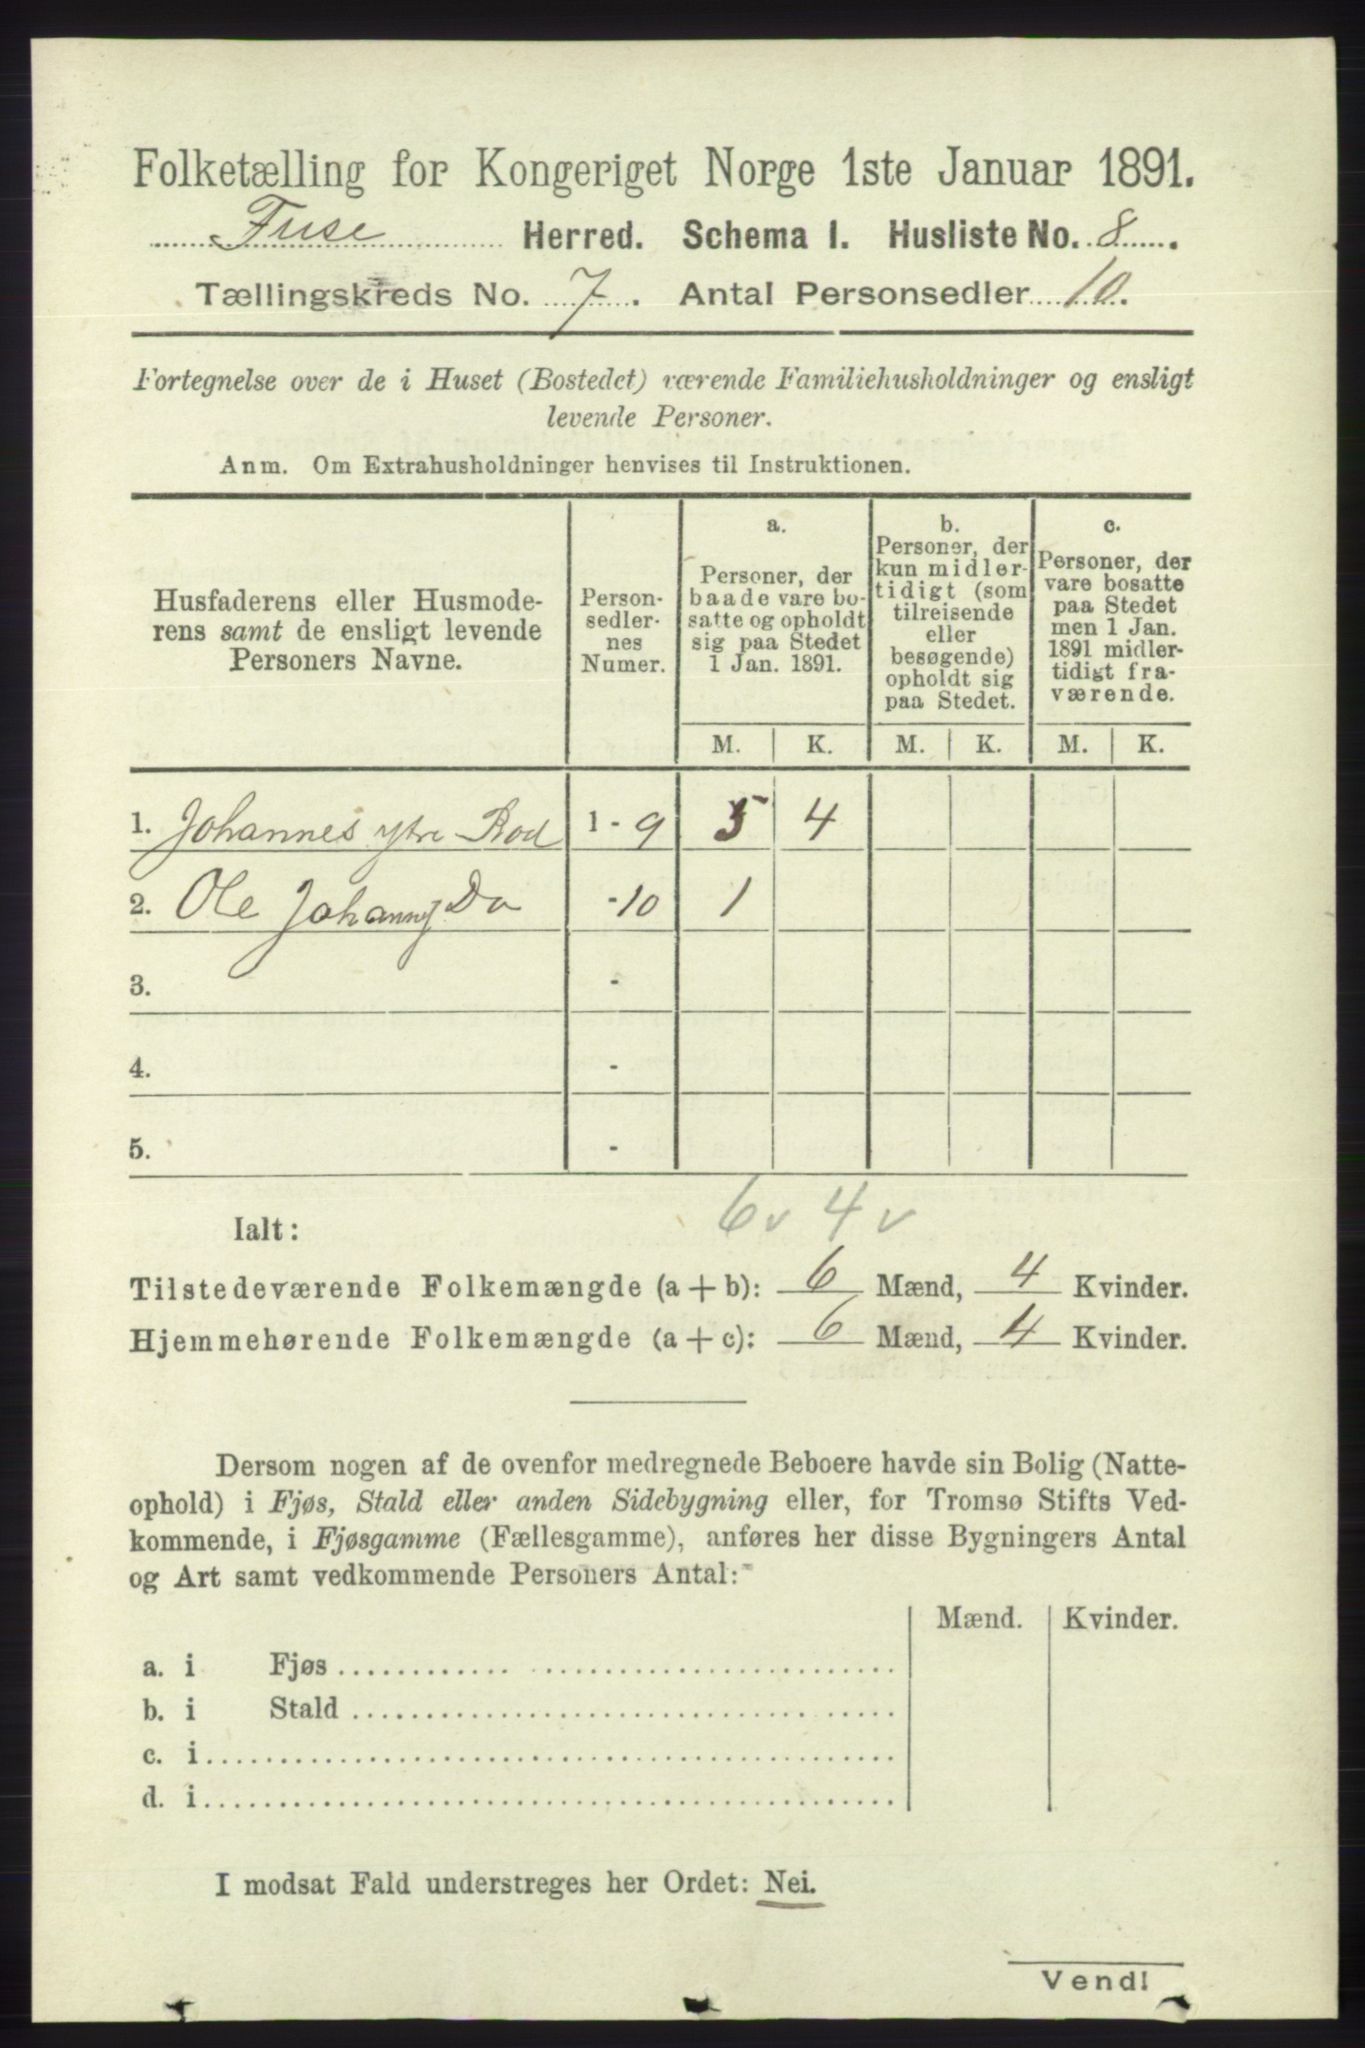 Folketælling for Kongeriget Norge 1ste Januar 1891.
Fuse Herred. Schema I. Husliste No. 8.
Tællingskreds No. 7. Antal Personsedler 10.
Fortegnelse over de i Huset (Bostedet) værende Familiehusholdninger og ensligt
levende Personer.
Anm. Om Extrahusholdninger henvises til Instruktionen.
Husfaderens eller Husmode-
rens samt de ensligt levende
Personers Navne.
Person-
sedler-
nes
Numer.
a.
Personer, der
baade vare bo-
satte og opholdt
sig paa Stedet
1 Jan. 1891.
b.
Personer, der
kun midler-
tidigt (som
tilreisende
eller
besøgende)
opholdt sig
paa Stedet.
c.
Personer, der
vare bosatte
paa Stedet
men 1 Jan.
1891 midler-
tidigt fra-
værende.
M. K. M. K. M. K.
1. Johannes ytre Rod 1 - 9 5 4
2. Ole Johannes Do - 10 1
3. -
4. -
5. -
6 v 4 v
Ialt:
Tilstedeværende Folkemængde (a + b): 6 Mænd, 4 Kvinder.
Hjemmehørende Folkemængde (a + c): 6 Mænd, 4 Kvinder.
Dersom nogen af de ovenfor medregnede Beboere havde sin Bolig (Natte-
ophold) i Fjøs, Stald eller anden Sidebygning eller, for Tromsø Stifts Ved-
kommende, i Fjøsgamme (Fællesgamme), anføres her disse Bygningers Antal
og Art samt vedkommende Personers Antal:
Mænd. Kvinder.
a. i Fjøs
b. i Stald
c. i
d. i
I modsat Fald understreges her Ordet: Nei.
Vend!